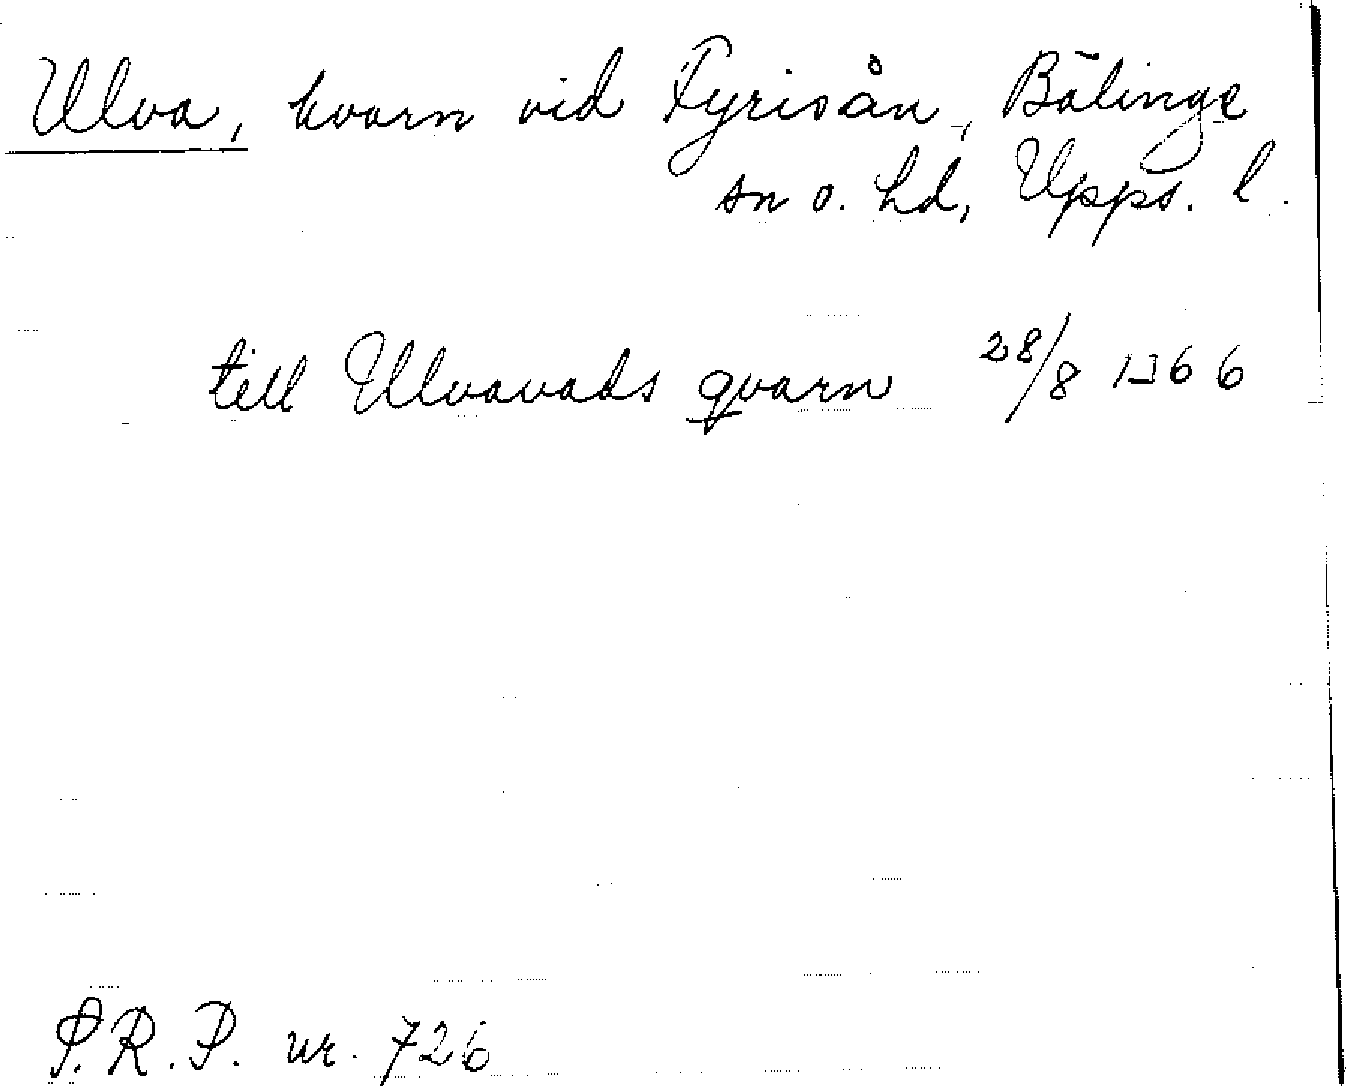 Ulva, kvarn vid Fyrisån, Bälinge
sn o. hd, Upps. l.
till Ulvavads qvarn 28/8 1366
S.R.P. nr. 726